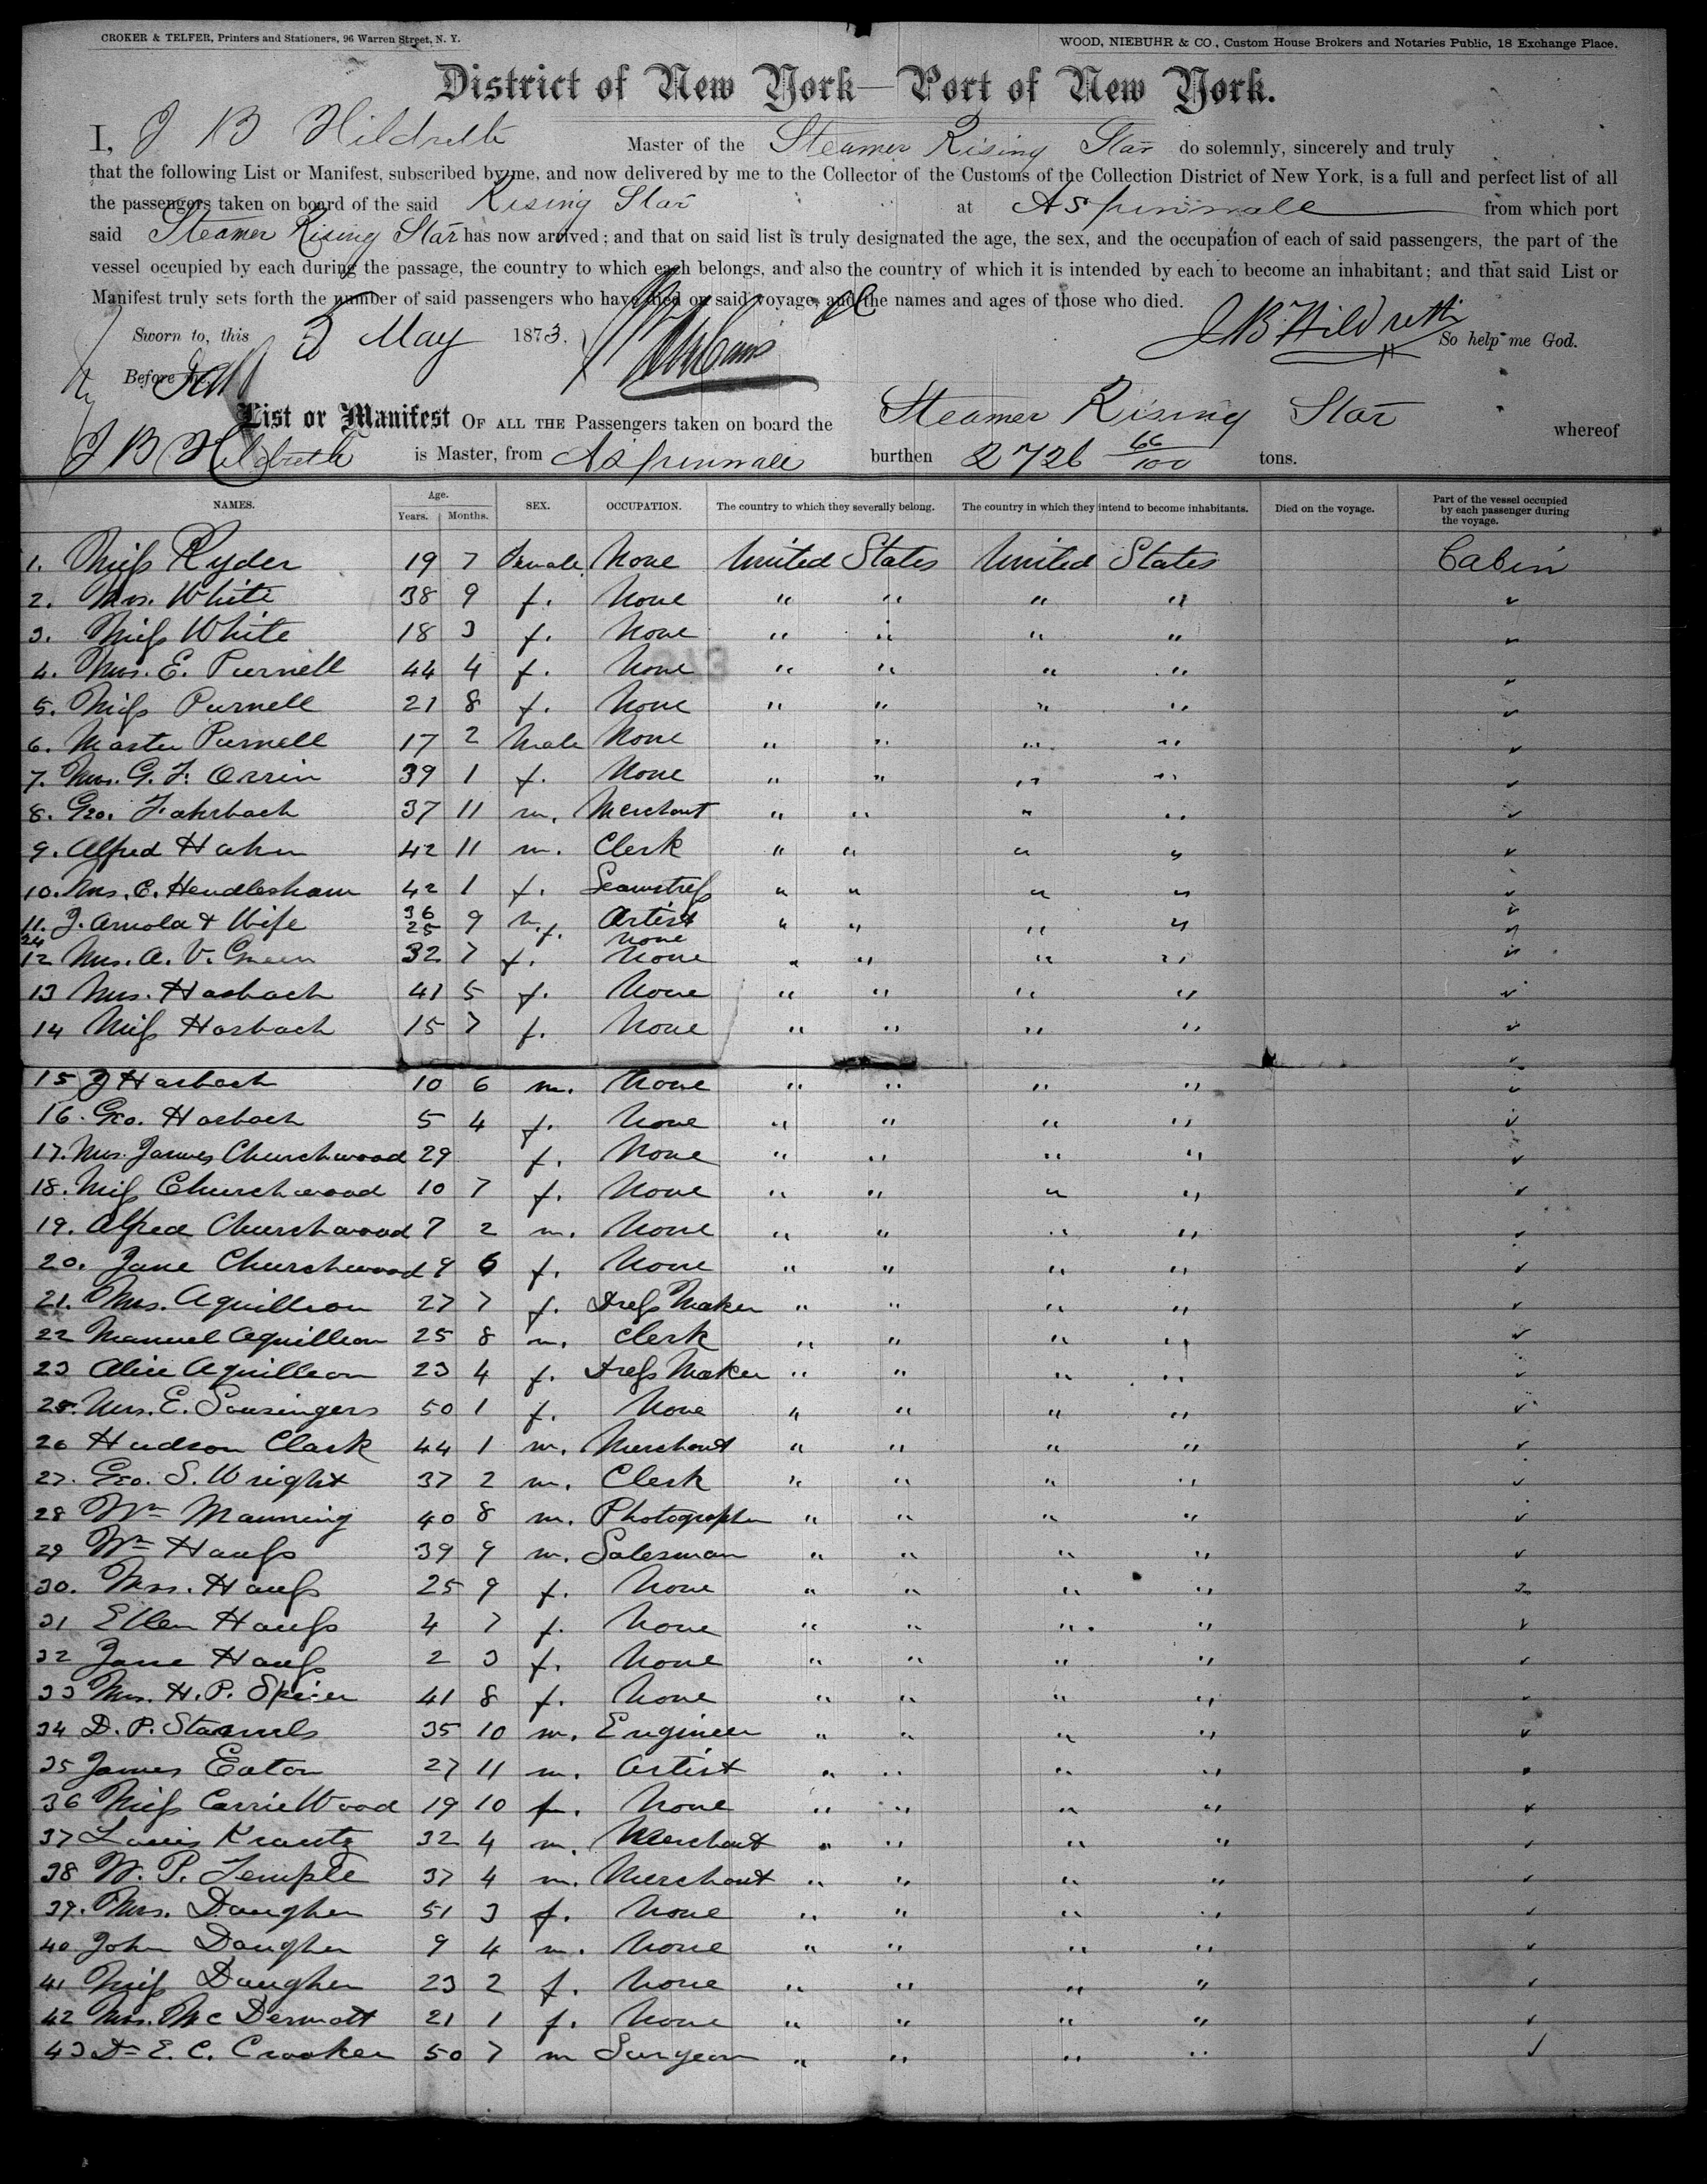 CROKER & TELFER, Printers and Stationers, 96 Warren Street, N. Y.
WOOD, NIEBUHR & CO., Custom House Brokers and Notaries Public, 18 Exchange Place.
District of New York—Port of New York.
I, J B Hildreth Master of the Steamer Rising Star do solemnly, sincerely and truly
that the following List or Manifest, subscribed by me, and now delivered by me to the Collector of the Customs of the Collection District of New York, is a full and perfect list of all
the passengers taken on board of the said Rising Star at Aspinwall from which port
said Steamer Rising Star has now arrived; and that on said list is truly designated the age, the sex, and the occupation of each of said passengers, the part of the
vessel occupied by each during the passage, the country to which each belongs, and also the country of which it is intended by each to become an inhabitant; and that said List or
Manifest truly sets forth the number of said passengers who have died on said voyage, and the names and ages of those who died.
Sworn to, this 5 May 1873. J B Hildreth So help me God.
Before me,
List or Manifest OF ALL THE Passengers taken on board the Steamer Rising Star whereof
J B Hildreth is Master, from Aspinwall burthen 2726 66/100 tons.
NAMES. Age. Years. Months. SEX. OCCUPATION. The country to which they severally belong. The country in which they intend to become inhabitants. Died on the voyage. Part of the vessel occupied by each passenger during the voyage.
1. Miss Ryder 19 7 Female None United States United States Cabin
2. Mrs. White 38 9 f. None " " " " ✓
3. Miss White 18 3 f. None " " " " ✓
4. Mrs. E. Purnell 44 4 f. None " " " " ✓
5. Miss Purnell 21 8 f. None " " " " ✓
6. Master Purnell 17 2 Male None " " " " ✓
7. Mrs. G. F. Orrin 39 1 f. None " " " " ✓
8. Geo. Fahrbach 37 11 m. Merchant " " " " ✓
9. Alfred Hahn 42 11 m. Clerk " " " " ✓
10. Mrs. C. Hendlesham 42 1 f. Seamstress " " " " ✓
11. J. Arnold & Wife 36 9 m. Artist " " " " ✓
24 25 f. None ✓
12 Mrs. A. V. Green 32 7 f. None " " " " ✓
13 Mrs. Hasbach 41 5 f. None " " " " ✓
14 Miss Hasbach 15 7 f. None " " " " ✓
15 J Hasbach 10 6 m. None " " " " ✓
16. Geo. Hasbach 5 4 f. None " " " " ✓
17. Mrs. James Churchwood 29 f. None " " " " ✓
18. Miss Churchwood 10 7 f. None " " " " ✓
19. Alfred Churchwood 7 2 m. None " " " " ✓
20. Jane Churchwood 9 6 f. None " " " " ✓
21. Mrs. Aquilleon 27 7 f. Dress Maker " " " " ✓
22 Manuel Aquilleon 25 8 m. Clerk " " " " ✓
23 Alice Aquilleon 23 4 f. Dress Maker " " " " ✓
25. Mrs. E. Sousingers 50 1 f. None " " " " ✓
26 Hudson Clark 44 1 m. Merchant " " " " ✓
27. Geo. S. Wright 37 2 m. Clerk " " " " ✓
28 Wm Manning 40 8 m. Photographer " " " " ✓
29 Wm Haufs 39 9 m. Salesman " " " " ✓
30. Mrs. Haufs 25 9 f. None " " " " ✓
31 Ellen Haufs 4 7 f. None " " " " ✓
32 Jane Haufs 2 3 f. None " " " " ✓
33 Mrs. H. P. 41 8 f. None " " " " ✓
34 D. P. 35 10 m. Engineer " " " " ✓
35 James Eaton 27 11 m. Artist " " " "
36 Miss Carrie Wood 19 10 f. None " " " " ✓
37 Louis Krautz 32 4 m. Merchant " " " " ✓
38 W. P. Temple 37 4 m. Merchant " " " " ✓
39. Mrs. Daugher 51 3 f. None " " " " ✓
40 John Daugher 9 4 m. None " " " " ✓
41 Miss Daugher 23 2 f. None " " " " ✓
42 Mrs. McDermott 21 1 f. None " " " " ✓
43 Dr E. C. Crooker 50 7 m Surgeon " " " " ✓